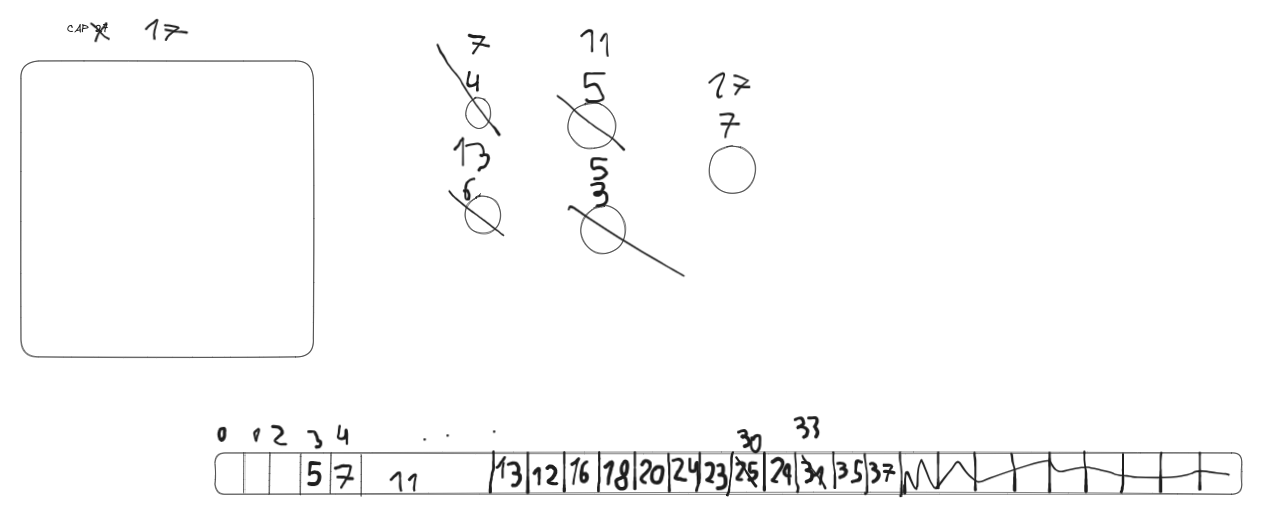 CAP 17
7 11
4 5 17
7
13 5
6 3
33
0 1 2 3 4 . . . 30
5 7 11 13 12 16 18 20 24 23 25 29 31 35 37